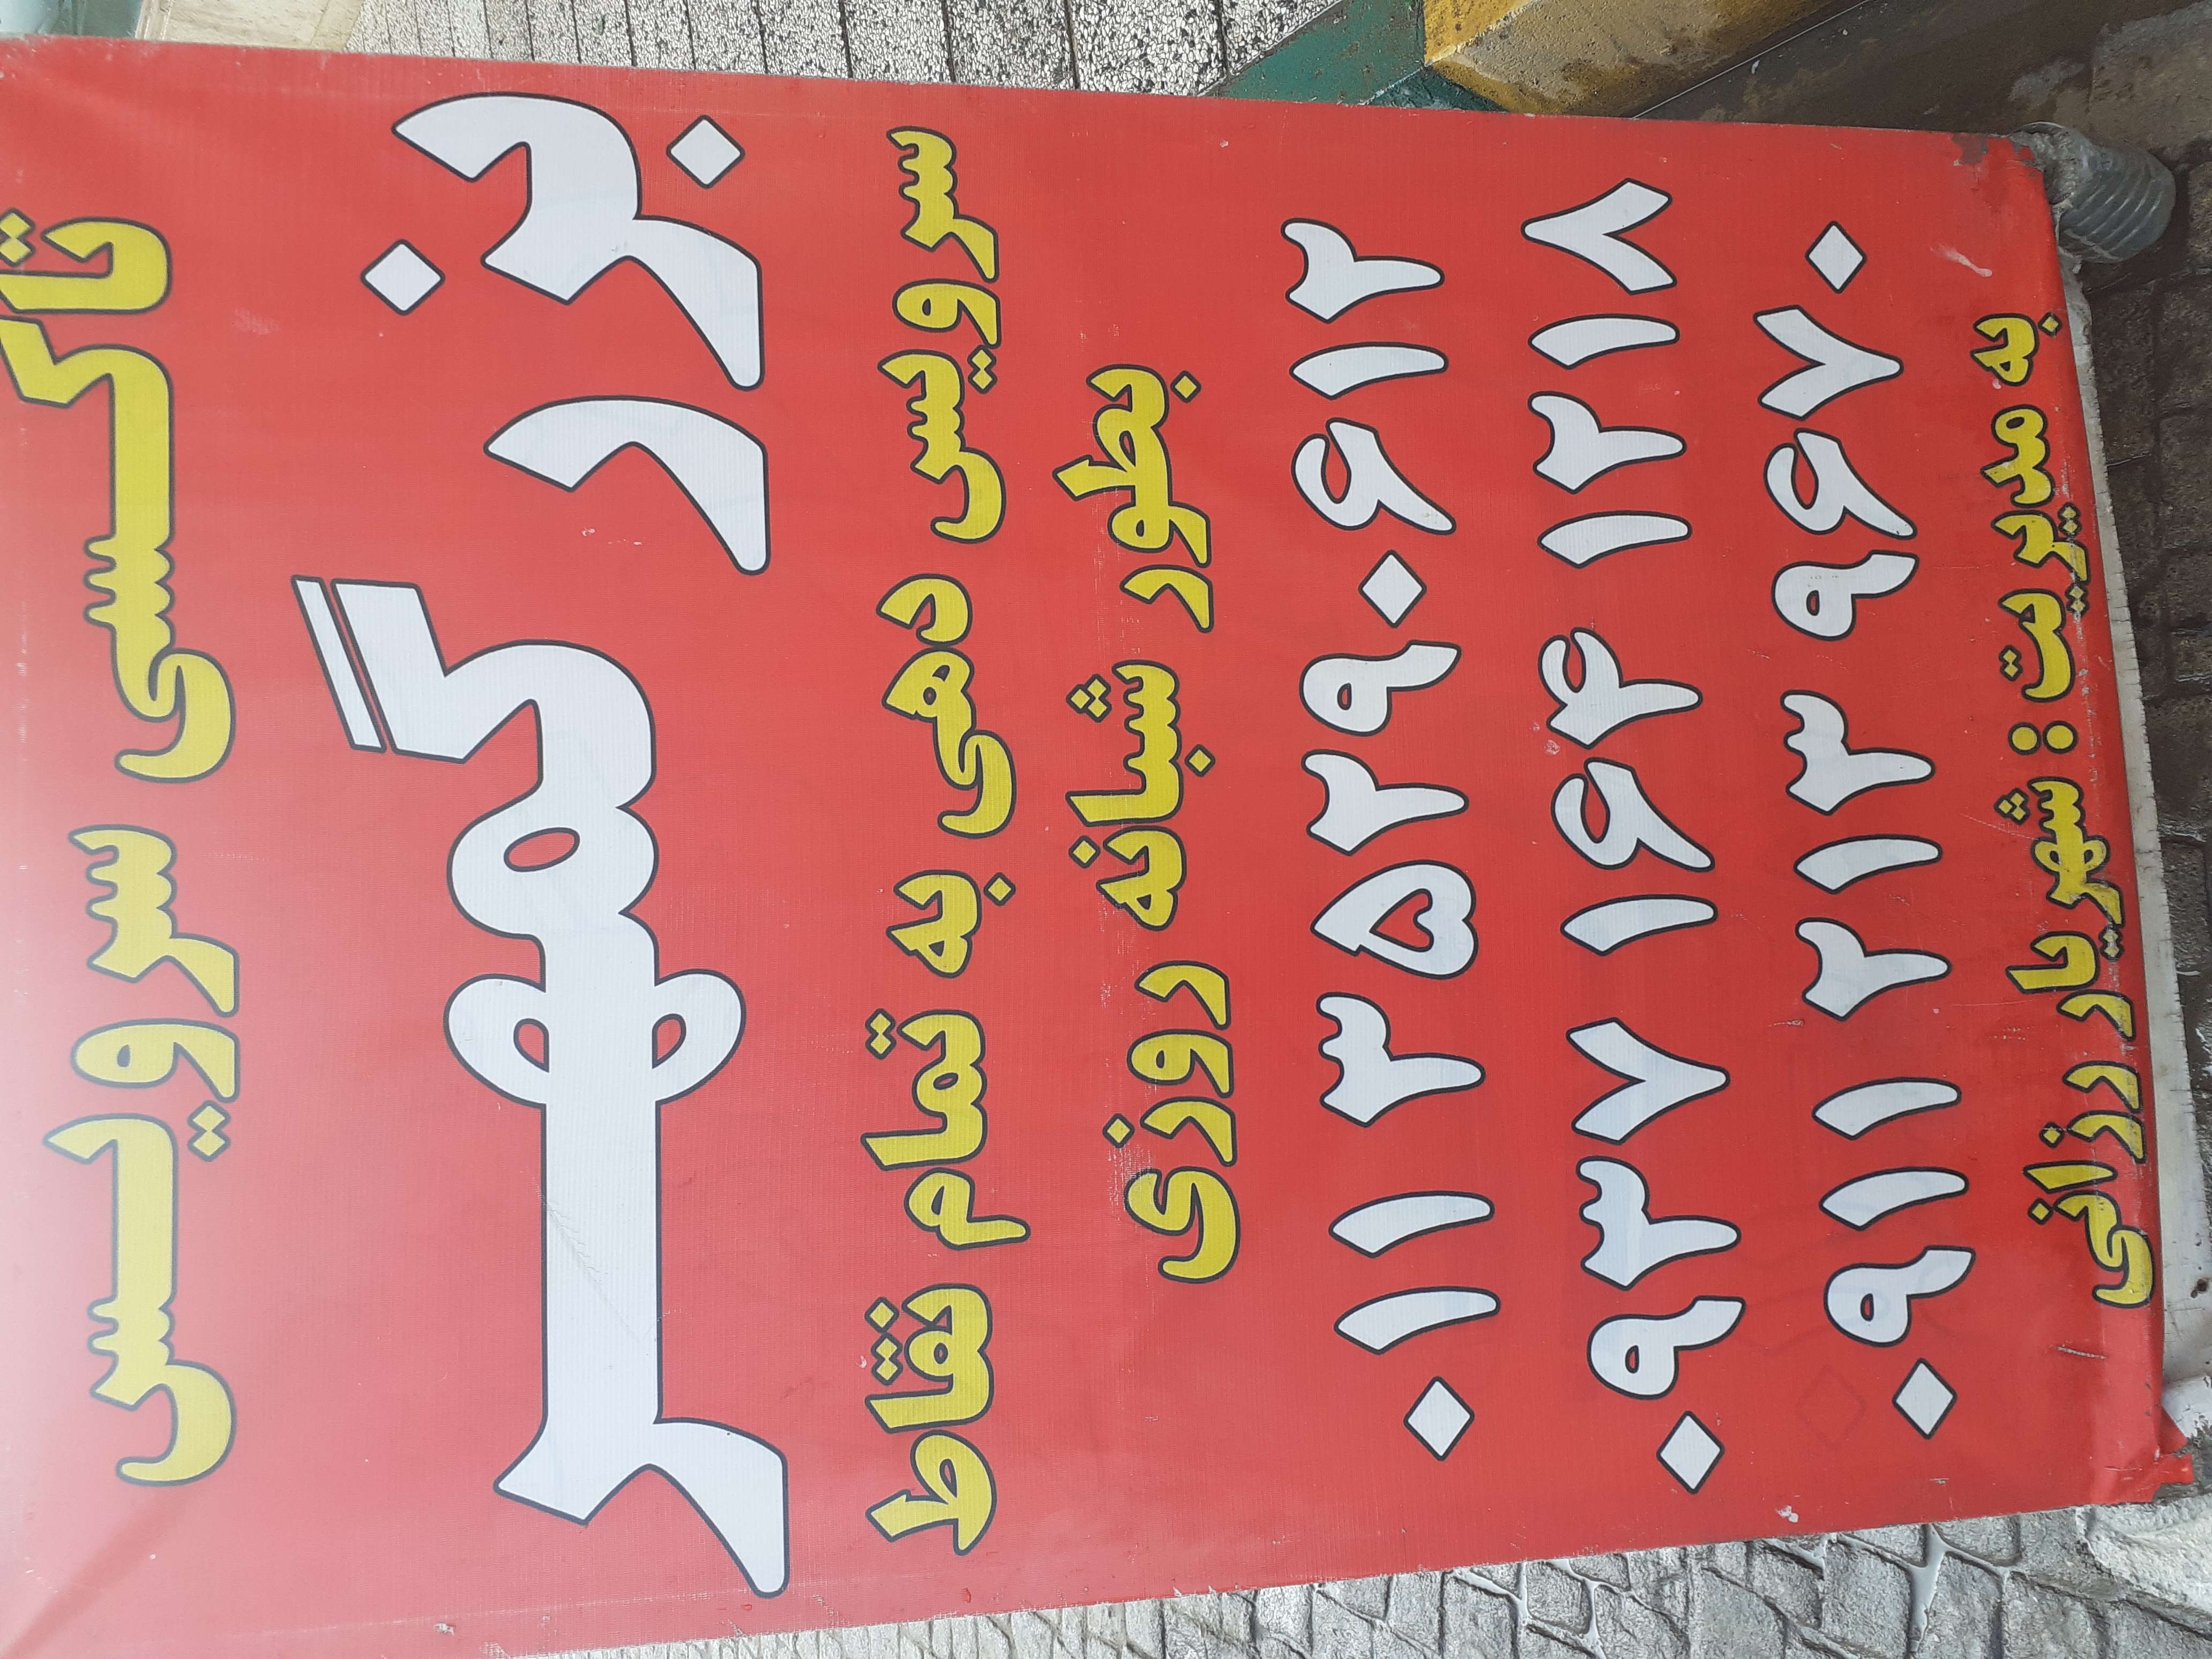 تاکسی سرویس
بزرگمهر
سرویس دهی به تمام نقاط
بطور شبانه روزی
۰۱۱ ۳۵۲۹۰۶۱۲
۰۹۳۷ ۱۶۴ ۱۲۱۸
۰۹۱۱ ۲۱۳ ۹۶۷۰
به مدیریت : شهریار رزانی